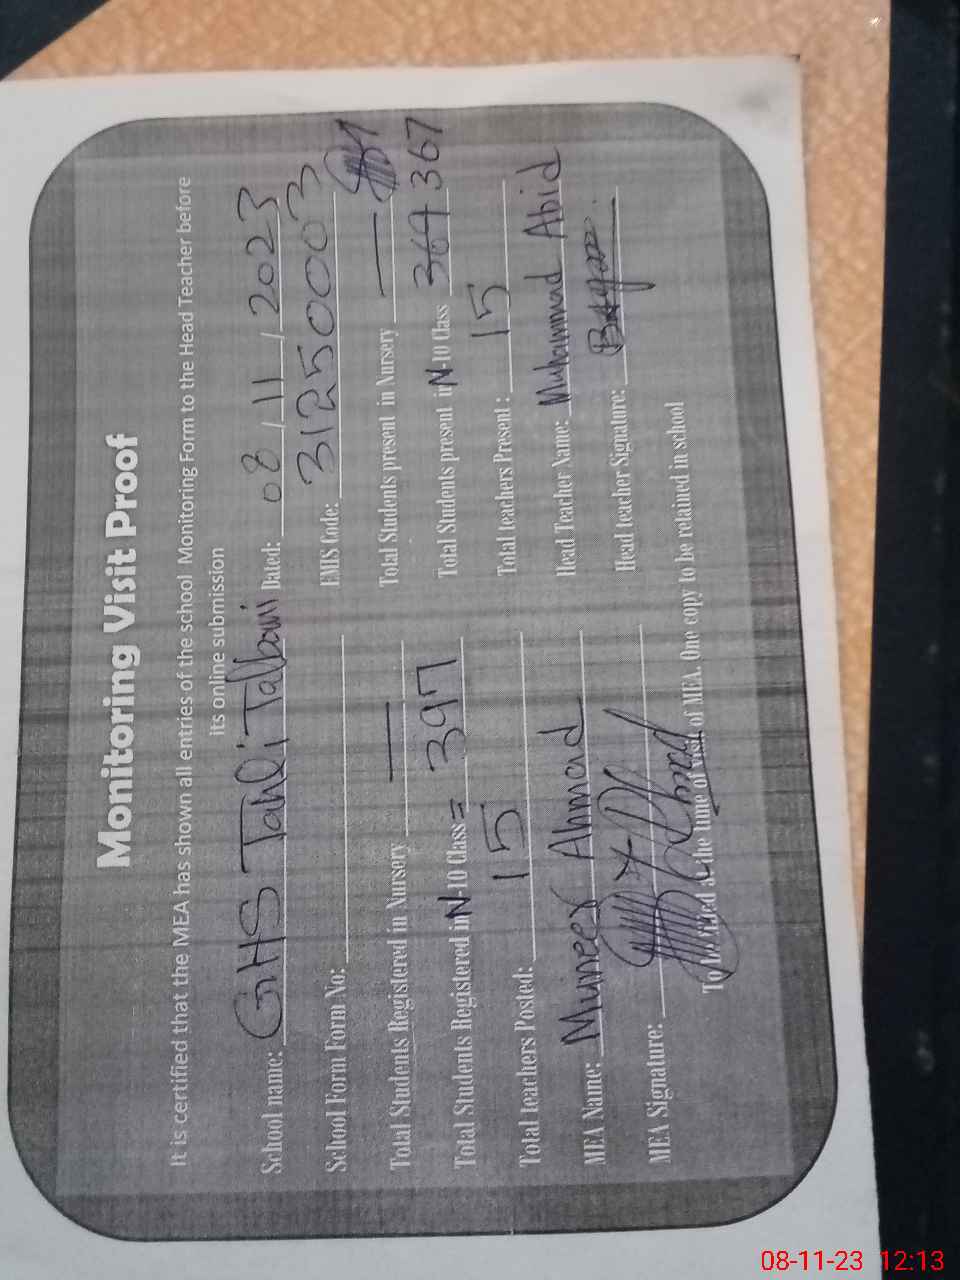 Monitoring Visit Proof
It is certified that the MEA has shown all entries of the school Monitoring Form to the Head Teacher before
its online submission
School name: GHS Tahli Talbani Dated: 08/11/2023
School Form No: EMIS Code: 31250003
Total Students Registered in Nursery — Total Students present in Nursery —
Total Students Registered in N-10 Class = 397 Total Students present in N-10 Class 364 367
Total teachers Posted: 15 Total teachers Present: 15
MEA Name: Muneer Ahmad Head Teacher Name: Muhammad Abid
MEA Signature: Head teacher Signature:
To be filled at the time of visit of MEA. One copy to be retained in school
08-11-23 12:13